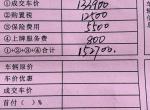 ①成交车价 133900
②购置税 12500
③保险费用 5500
④上牌服务费 800
①+②+③+④合计 152700.
车辆原价
车价优惠
成交车价
首付( )%